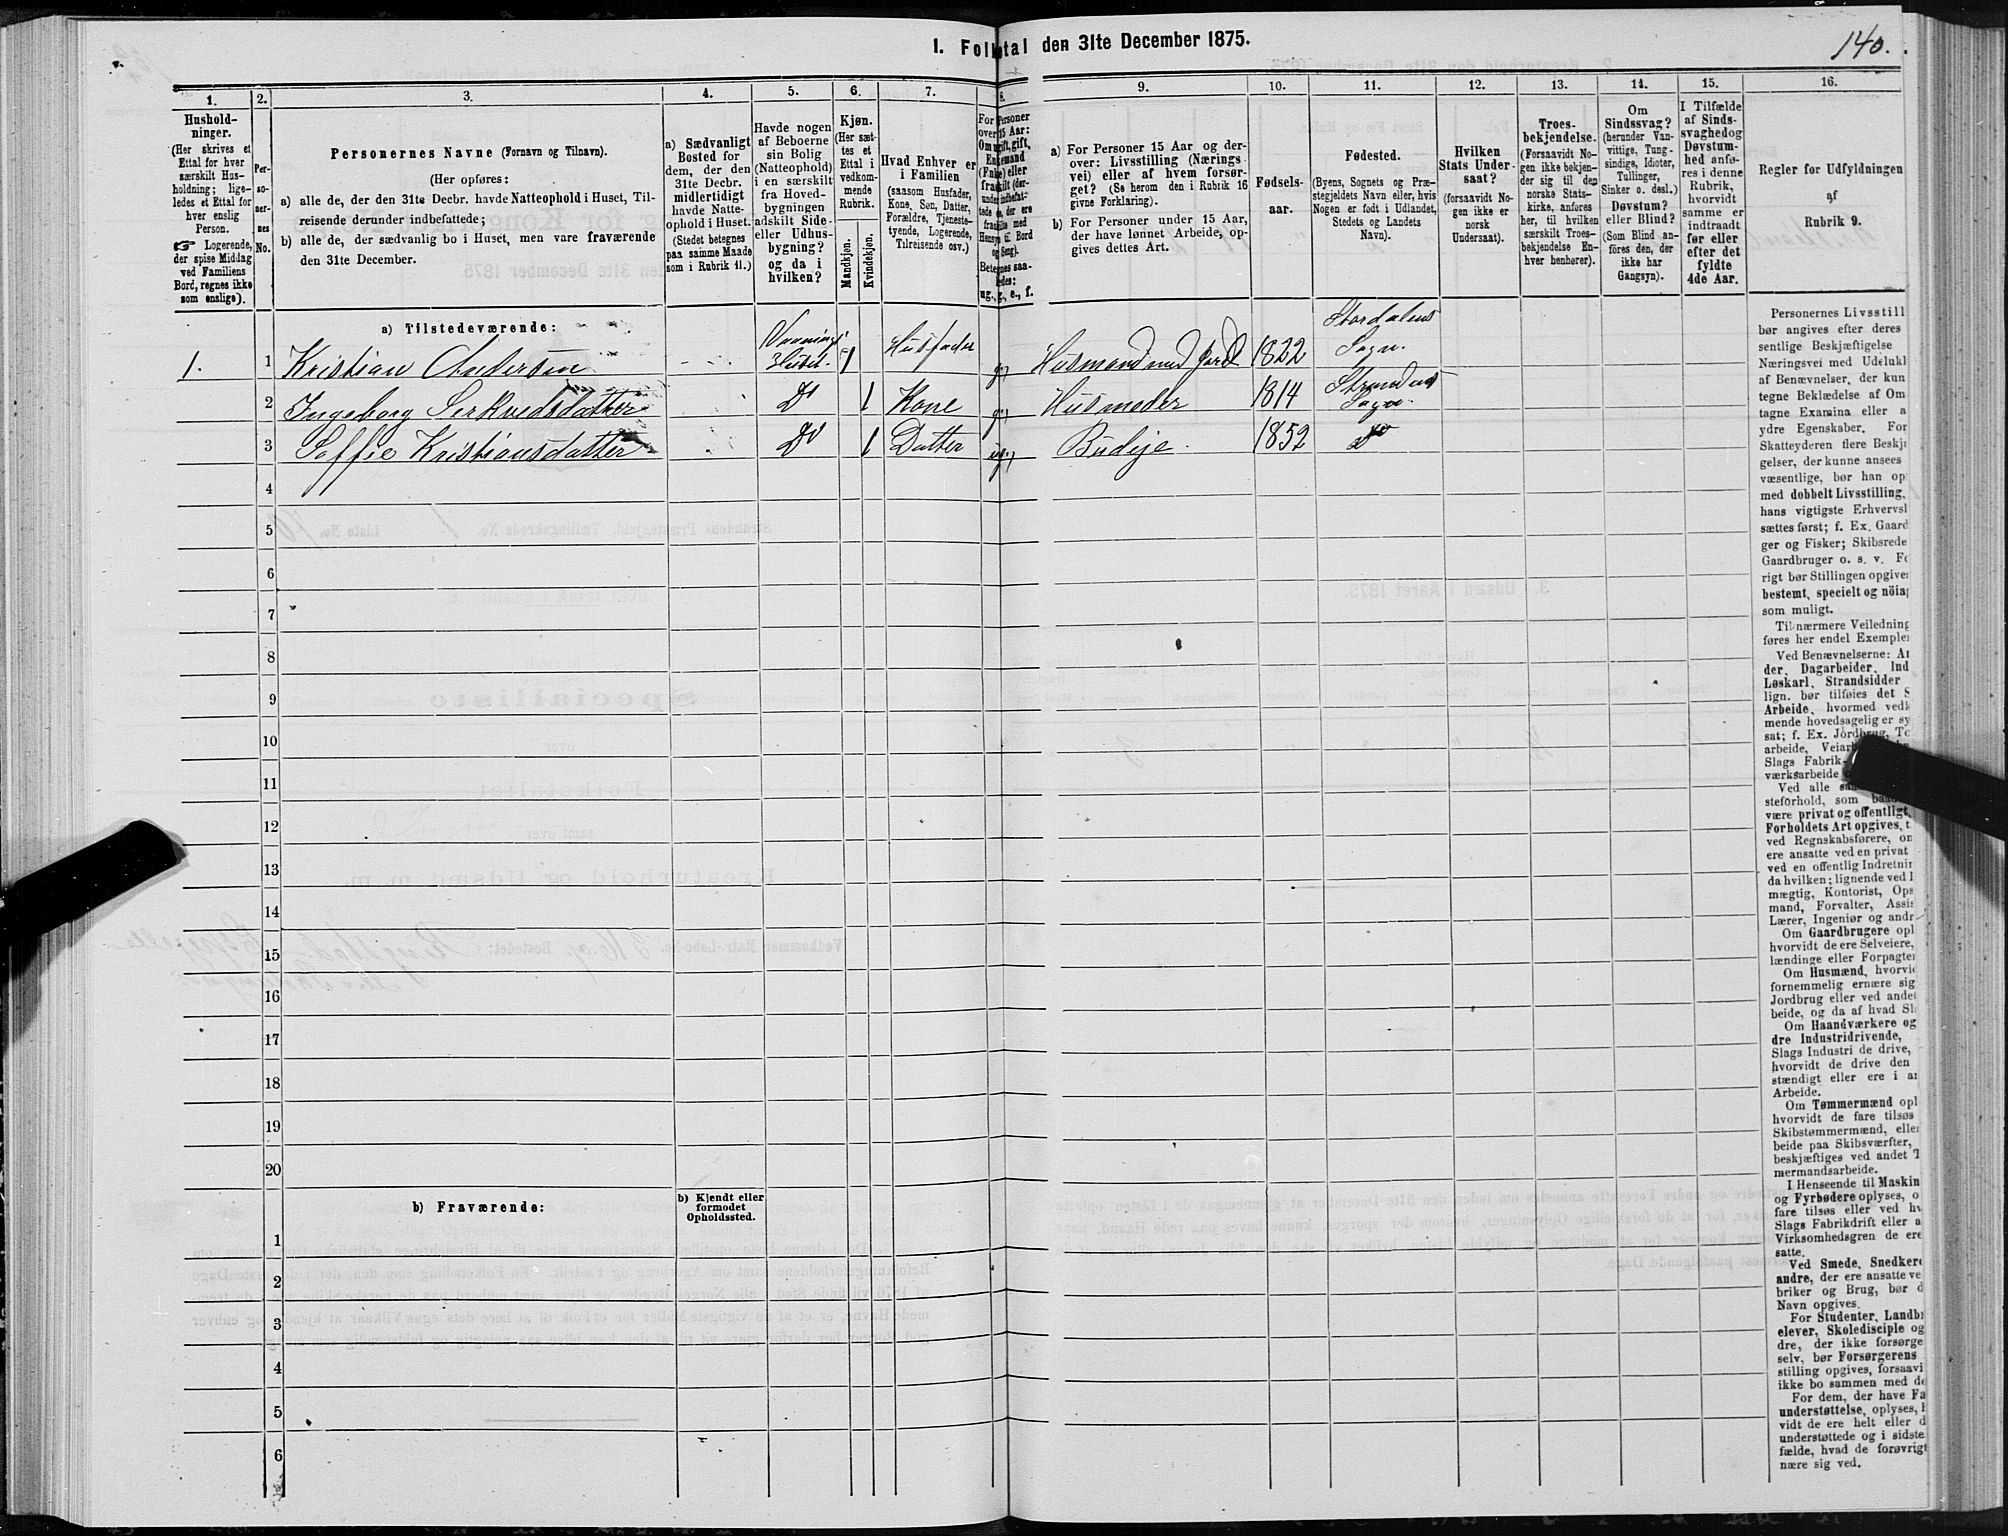 1. Folketal den 31te December 1875.
140.
1.
Hushold-
ninger.
(Her skrives et
Ettal for hver
særskilt Hus-
holdning; lige-
ledes et Ettal for
hver enslig
Person.
☞ Logerende,
der spise Middag
ved Familiens
Bord, regnes ikke
som enslige).
2.
Per-
so-
ner-
nes
No.
3.
Personernes Navne (Fornavn og Tilnavn).
(Her opføres:
a) alle de, der den 31te Decbr. havde Natteophold i Huset, Til-
reisende derunder indbefattede;
b) alle de, der sædvanlig bo i Huset, men vare fraværende
den 31te December.
4.
a) Sædvanligt
Bosted for
dem, der den
31te Decbr.
midlertidigt
havde Natte-
ophold i Huset.
(Stedet betegnes
paa samme Maade
som i Rubrik 11.)
5.
Havde nogen
af Beboerne
sin Bolig
(Natteophold)
i en særskilt
fra Hoved-
bygningen
adskilt Side-
eller Udhus-
bygning?
og da i
hvilken?
6.
Kjøn.
(Her sæt-
tes et
Ettal i
vedkom-
mende
Rubrik.
Mandkjøn.
Kvindekjøn.
7.
Hvad Enhver er
i Familien
(saasom Husfader,
Kone, Søn, Datter,
Forældre, Tjeneste-
tyende, Logerende,
Tilreisende osv.)
8.
ug., g., e., f.
9.
a) For Personer 15 Aar og der-
over: Livsstilling (Nærings
vei) eller af hvem forsør-
get? (Se herom den i Rubrik 16
givne Forklaring).
b) For Personer under 15 Aar,
der have lønnet Arbeide, op-
gives dettes Art.
10.
Fødsels-
aar.
11.
Fødested.
(Byens, Sognets og Præ-
stegjeldets Navn eller, hvis
Nogen er født i Udlandet,
Stedets og Landets
Navn).
12.
Hvilken
Stats Under-
saat?
(forsaavidt No-
gen ikke er
norsk
Undersaat).
13.
Troes-
bekjendelse.
(Forsaavidt No-
gen ikke bekjen-
der sig til den
norske Stats-
kirke, anføres
her, til hvilken
særskilt Troes-
bekjendelse En-
hver henhører).
14.
Om
Sindssvag?
(herunder Van-
vittige, Tung-
sindige, Idioter,
Tullinger,
Sinker o. desl.)
Døvstum?
eller Blind?
(Som Blind an-
føres den, der
ikke har
Gangsyn).
15.
I Tilfælde
af Sinds-
svaghedog
Døvstum-
hed anfø-
res i denne
Rubrik,
hvorvidt
samme er
indtraadt
før eller
efter det
fyldte
4de Aar.
16.
Regler for Udfyldningen
af
Rubrik 9.
a) Tilstedeværende:
1. 1 Kristian Andersen Vaanings Huset. 1 Husfader g) Husmand med Jord 1822 Stordalens Sogn.
2 Ingeborg Serkvedsdatter Do 1 Kone g) Husmoder 1814 Strandens Sogn.
3 Soffie Kristiansdatter Do 1 Datter ug.) Budeje. 1852 Do
4
5
6
7
8
9
10
11
12
13
14
15
16
17
18
19
20
b) Fraværende:
b) Kjendt eller
formodet
Opholdssted.
1
2
3
4
5
6
Personernes Livsstill
bør angives efter deres
sentlige Beskjæftigelse
Næringsvei med Udelukl
af Benævnelser, der kun
tegne Beklædelse af Om
tagne Examina eller a
ydre Egenskaber. For
Skatteyderen flere Beskj
gelser, der kunne ansees
væsentlige, bør han op
med dobbelt Livsstilling,
hans vigtigste Erhvervsl
sættes først; f. Ex. Gaard
ger og Fisker; Skibsrede
Gaardbruger o. s. v. Fo
rigt bør Stillingen opgive
bestemt, specielt og nöia
som muligt.
Til nærmere Veiledning
føres her endel Exempler
Ved Benævnelserne: Ar
der, Dagarbeider, Ind
Løskarl, Strandsidder
lign. bør tilføies det S
Arbeide, hvormed ved
mende hovedsagelig er sy
sat; f. Ex. Jordbrug, To
arbeide,
Slags Fabrik-
værksarbeide
Ved alle
steforhold, som
være privat og offentligt,
Forholdets Art opgives, t
ved Regnskabsførere, on
ere ansatte ved en privat
ved en offentlig Indretnin
da hvilken; lignende ved
mægtig, Kontorist, Ops
mand, Forvalter, Assis
Lærer, Ingeniør og andr
Om Gaardbrugere opl
hvorvidt de ere Selveiere,
lændinge eller Forpagter
Om Husmænd, hvorvi
fornemmelig ernære sig
Jordbrug eller ved andet
beide, og da af hvad Sl
Om Haandværkere og
dre Industridrivende,
Slags Industri de drive,
hvorvidt de drive den
stændigt eller ere i an
Arbeide.
Om Tømmermænd opl
hvorvidt de fare tilsøs
Skibstømmermænd, eller
beide paa Skibsværfter,
beskjæftiges ved andet T
mermandsarbeide.
I Henseende til Maskin
og Fyrbødere oplyses, o
fare tilsøs eller ved hv
Slags Fabrikdrift eller a
Virksomhedsgren de ere
satte.
Ved Smede, Snedkere
andre, der ere ansatte ve
briker og Brug, bør d
Navn opgives.
For Studenter, Landbr
elever, Skoledisciple og
dre, der ikke forsørge
selv, bør Forsørgerens
stilling opgives, forsaavi
ikke bo sammen med de
For dem, der have Fa
understøttelse, oplyses, h
vidt de ere helt eller d
understøttede og i sidste
fælde, hvad de forøvrigt
nære sig ved.